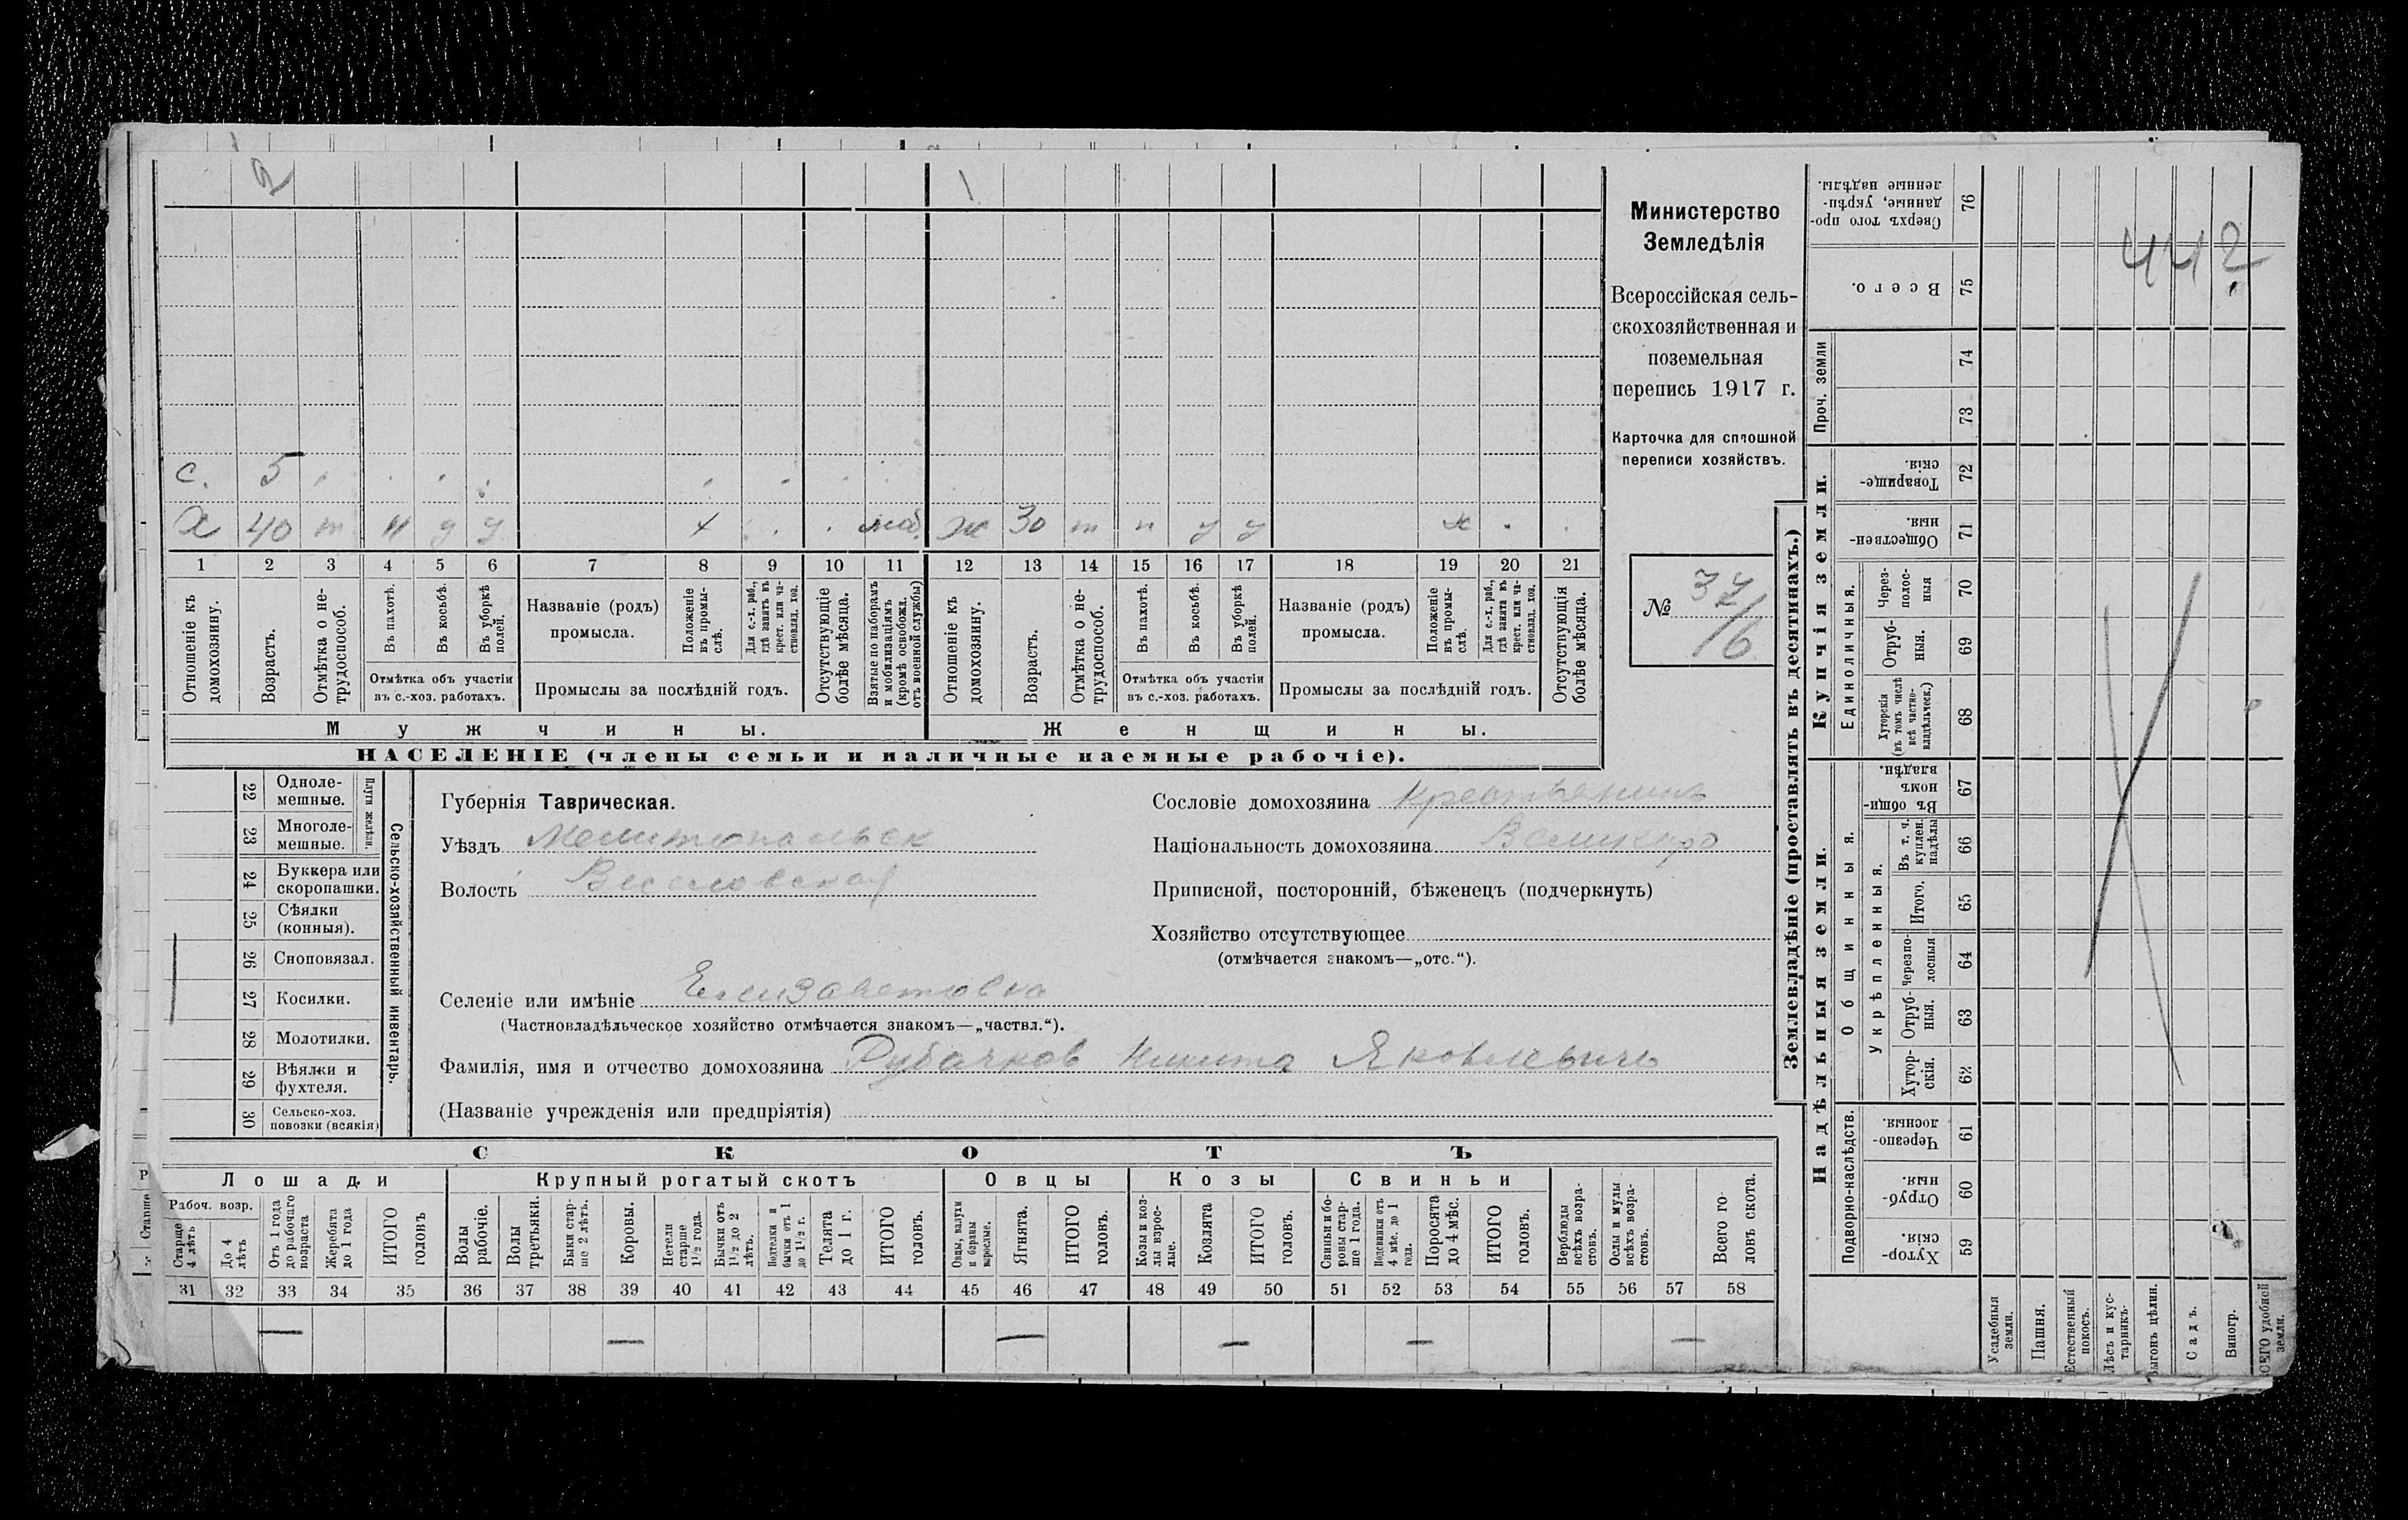 2 1
с. 5
х 40 т п у у х моб. ж 30 т п у у х
1 2 3 4 5 6 7 8 9 10 11 12 13 14 15 16 17 18 19 20 21
Отношеніе къ домохозяину.
Возрастъ.
Отмѣтка о не-трудоспособ.
Въ пахотѣ.
Въ косьбѣ.
Въ уборкѣ полей.
Отмѣтка объ участіи
въ с.-хоз. работахъ.
Названіе (родъ)
промысла.
Положеніе въ промы-слѣ.
Для с.-х. раб., гдѣ занятъ въ крест. или ча-стновлад. хоз.
Промыслы за послѣдній годъ.
Отсутствующіе болѣе мѣсяца.
Взятые по наборамъ и мобилизаціямъ (кромѣ освобожд. отъ военной службы)
Отношеніе къ домохозяину.
Возрастъ.
Отмѣтка о не-трудоспособ.
Въ пахотѣ.
Въ косьбѣ.
Въ уборкѣ полей.
Отмѣтка объ участіи
въ с.-хоз. работахъ.
Названіе (родъ)
промысла.
Положеніе въ промы-слѣ.
Для с.-х. раб., гдѣ занята въ крест. или ча-стновлад. хоз.
Промыслы за послѣдній годъ.
Отсутствующія болѣе мѣсяца.
Мужчины.
Женщины.
НАСЕЛЕНІЕ (члены семьи и наличные наемные рабочіе).
Министерство
Земледѣлія
Всероссійская сель-
скохозяйственная и
поземельная
перепись 1917 г.
Карточка для сплошной
переписи хозяйствъ.
№ 37/6
22 Одноле-мешные.
23 Многоле-мешные.
Плуги желѣзн.
24 Буккера или скоропашки.
25 Сѣялки (конныя).
26 Сноповязал.
27 Косилки.
28 Молотилки.
29 Вѣялки и фухтеля.
30 Сельско-хоз. повозки (всякія)
Сельско-хозяйственный инвентарь.
Губернія Таврическая.
Уѣздъ Мелитопольск
Волость Веселовская
Сословіе домохозяина Крестьянинъ
Національность домохозяина Великоро
Приписной, посторонній, бѣженецъ (подчеркнуть)
Хозяйство отсутствующее
(отмѣчается знакомъ—„отс.“).
Селеніе или имѣніе Елизаветовка
(Частновладѣльческое хозяйство отмѣчается знакомъ—„частвл.“).
Фамилія, имя и отчество домохозяина Рубачков Никита Яковлевичъ
(Названіе учрежденія или предпріятія)
СКОТЪ
Лошади
Крупный рогатый скотъ
Овцы
Козы
Свиньи
Рабоч. возр.
Старше 4 лѣтъ
До 4 лѣтъ
Отъ 1 года до рабочаго возраста
Жеребята до 1 года
ИТОГО головъ
Волы рабочіе.
Волы третьяки.
Быки стар-ше 2 лѣтъ.
Коровы.
Нетели старше 1 1/2 года.
Бычки отъ 1 1/2 до 2 лѣтъ.
Подтелки и бычки отъ 1 до 1 1/2 г.
Телята до 1 г.
ИТОГО головъ.
Овцы, валухи и бараны взрослые.
Ягнята.
ИТОГО головъ.
Козы и коз-лы взрос-лые.
Козлята
ИТОГО головъ.
Свиньи и бо-ровы стар-ше 1 года.
Подсвинки отъ 4 мѣс. до 1 года.
Поросята до 4 мѣс.
ИТОГО головъ.
Верблюды всѣхъ возра-стовъ.
Ослы и мулы всѣхъ возра-стовъ.
Всего го-ловъ скота.
31 32 33 34 35 36 37 38 39 40 41 42 43 44 45 46 47 48 49 50 51 52 53 54 55 56 57 58
— — — — — —
Землевладѣніе (проставлять въ десятинахъ.)
Надѣльныя земли.
Купчія земли.
Проч. земли
Подворно-наслѣдств.
Общинныя.
Укрѣпленныя.
Единоличныя.
Сверхъ того про-данные, укрѣп-ленные надѣлы. 76
Всего. 75
74
73
Товарище-скія. 72
Обществен-ныя. 71
Через-полос-ныя 70
Отруб-ныя. 69
Хуторскія (въ томъ числѣ всѣ частно-владѣльческ.) 68
Въ общи-номъ владѣн. 67
Въ т. ч. куплен. надѣлы 66
Итого. 65
Черезпо-лосныя 64
Отруб-ныя. 63
Хутор-скія. 62
Черезпо-лосныя. 61
Отруб-ныя. 60
Хутор-скія. 59
Усадебныя земли.
Пашня.
Естественный покосъ.
Лѣсъ и кус-тарникъ.
ыгонъ цѣлин.
Садъ.
Виногр.
СЕГО удобной земли.
442